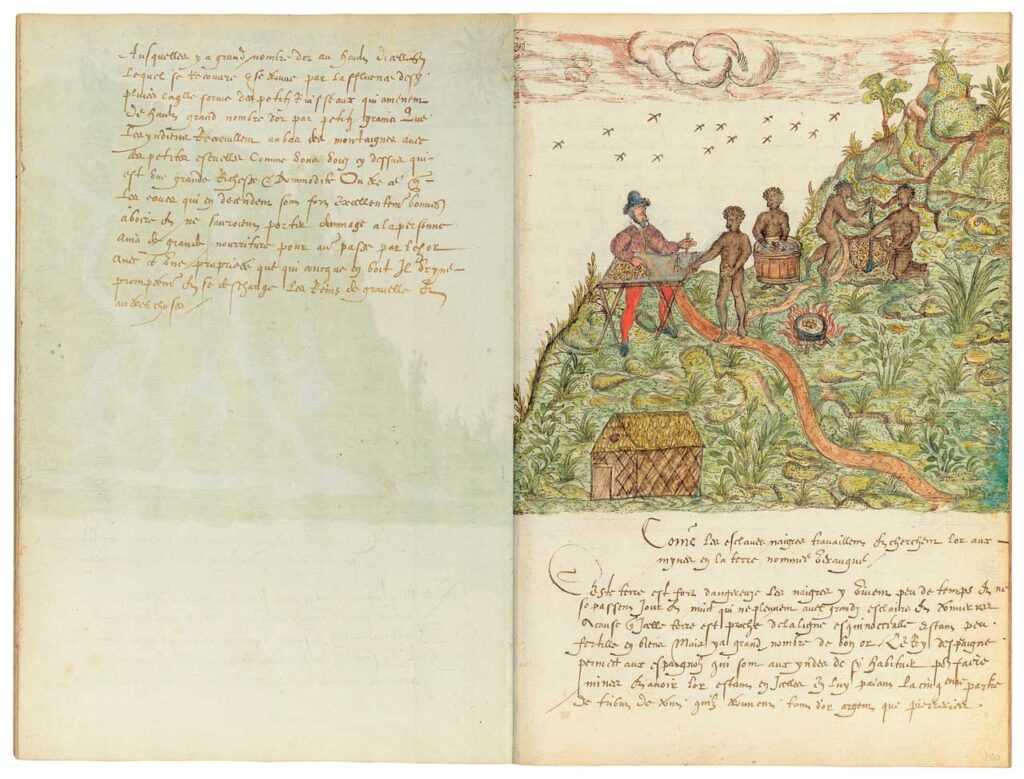 Ausquelles y a grand nombre dor au hault dicelles
lequel se decouvre & se trouve par laffluence des
pluies laqlle forme des petitz Ruisseaux qui amenent
de hault grand nombre dor par petitz grains que
les yndiens Recueullent au bas des montaignes avec
des petites escuelles Comme cy dessus qui
est une grande Richesse & Commodite Outre ce q
les eaues qui en decendent sont fort excellentem bonnes
a boire & ne scauroient porter dommage a la personne
ains de grande nourriture pour avoir passe par lor
avec ce une propriete que qui concque en boit Il uryne
prompem & se descharge les Reins de gravelle &
autres choses
Come les esclaves naigres travaillent & cherchent lor aux
mynes en la terre nommee Veraugue
Ceste terre est fort dangereuze les naigres y vivent peu de temps & ne
se passent jour & nuict qui ne pleuvent avec grandz esclaires & tonnerres
a cause q Icelle terre est proche de la ligne esquinoctialle estant peu
fertille en biens Mais y a grand nombre de bon or Le Roy despaigne
permect aux espagnolz qui sont aux yndes de sy habituer po faire
miner & avoir lor estant en Icelles en luy paiant la cinqeme partie
de tribut de tout quilz trouvent tant dor argent que pierreries
100